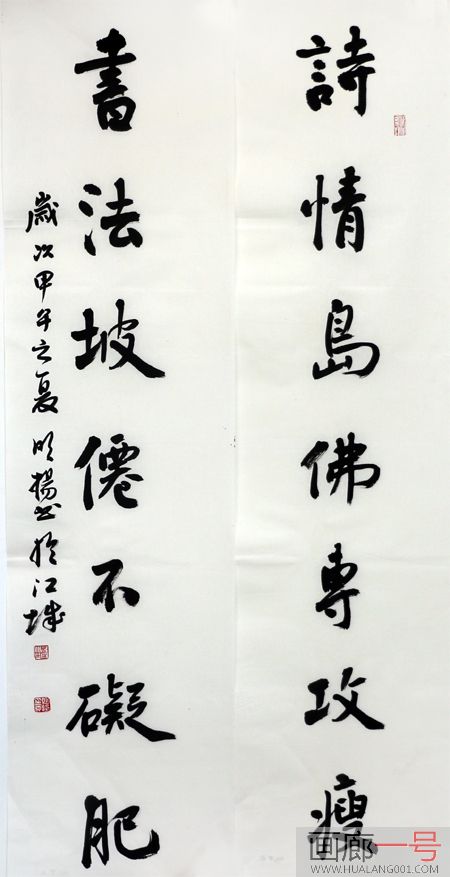 詩情島佛専攻瘦
書法坡僊不礙肥
歲次甲午之夏明楊書於江城
画廊一号
WWW.HUALANG001.COM